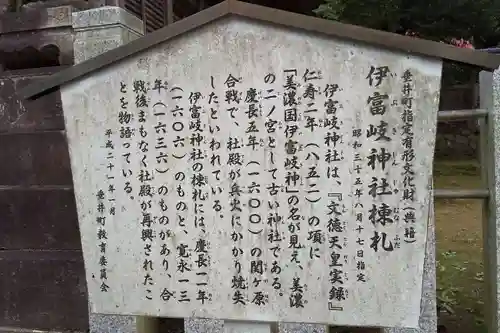 垂井町指定有形文化財(典籍)
伊富岐神社棟札
いぶきじんじゃむなふだ
昭和三十五年八月十七日指定
伊富岐神社は、『文徳天皇実録』
仁寿二年(八五二)の項に
「美濃国伊富岐神」の名が見え、美濃
の二ノ宮として古い神社である。
慶長五年(一六〇〇)の関ヶ原
合戦で、社殿が兵火にかかり焼失
したといわれている。
伊富岐神社の棟札には、慶長十一年
(一六〇六)のものと、寛永一三
年(一六三六)のものがあり、合
戦後まもなく社殿が再興されたこ
とを物語っている。
平成二十一年一月
垂井町教育委員会